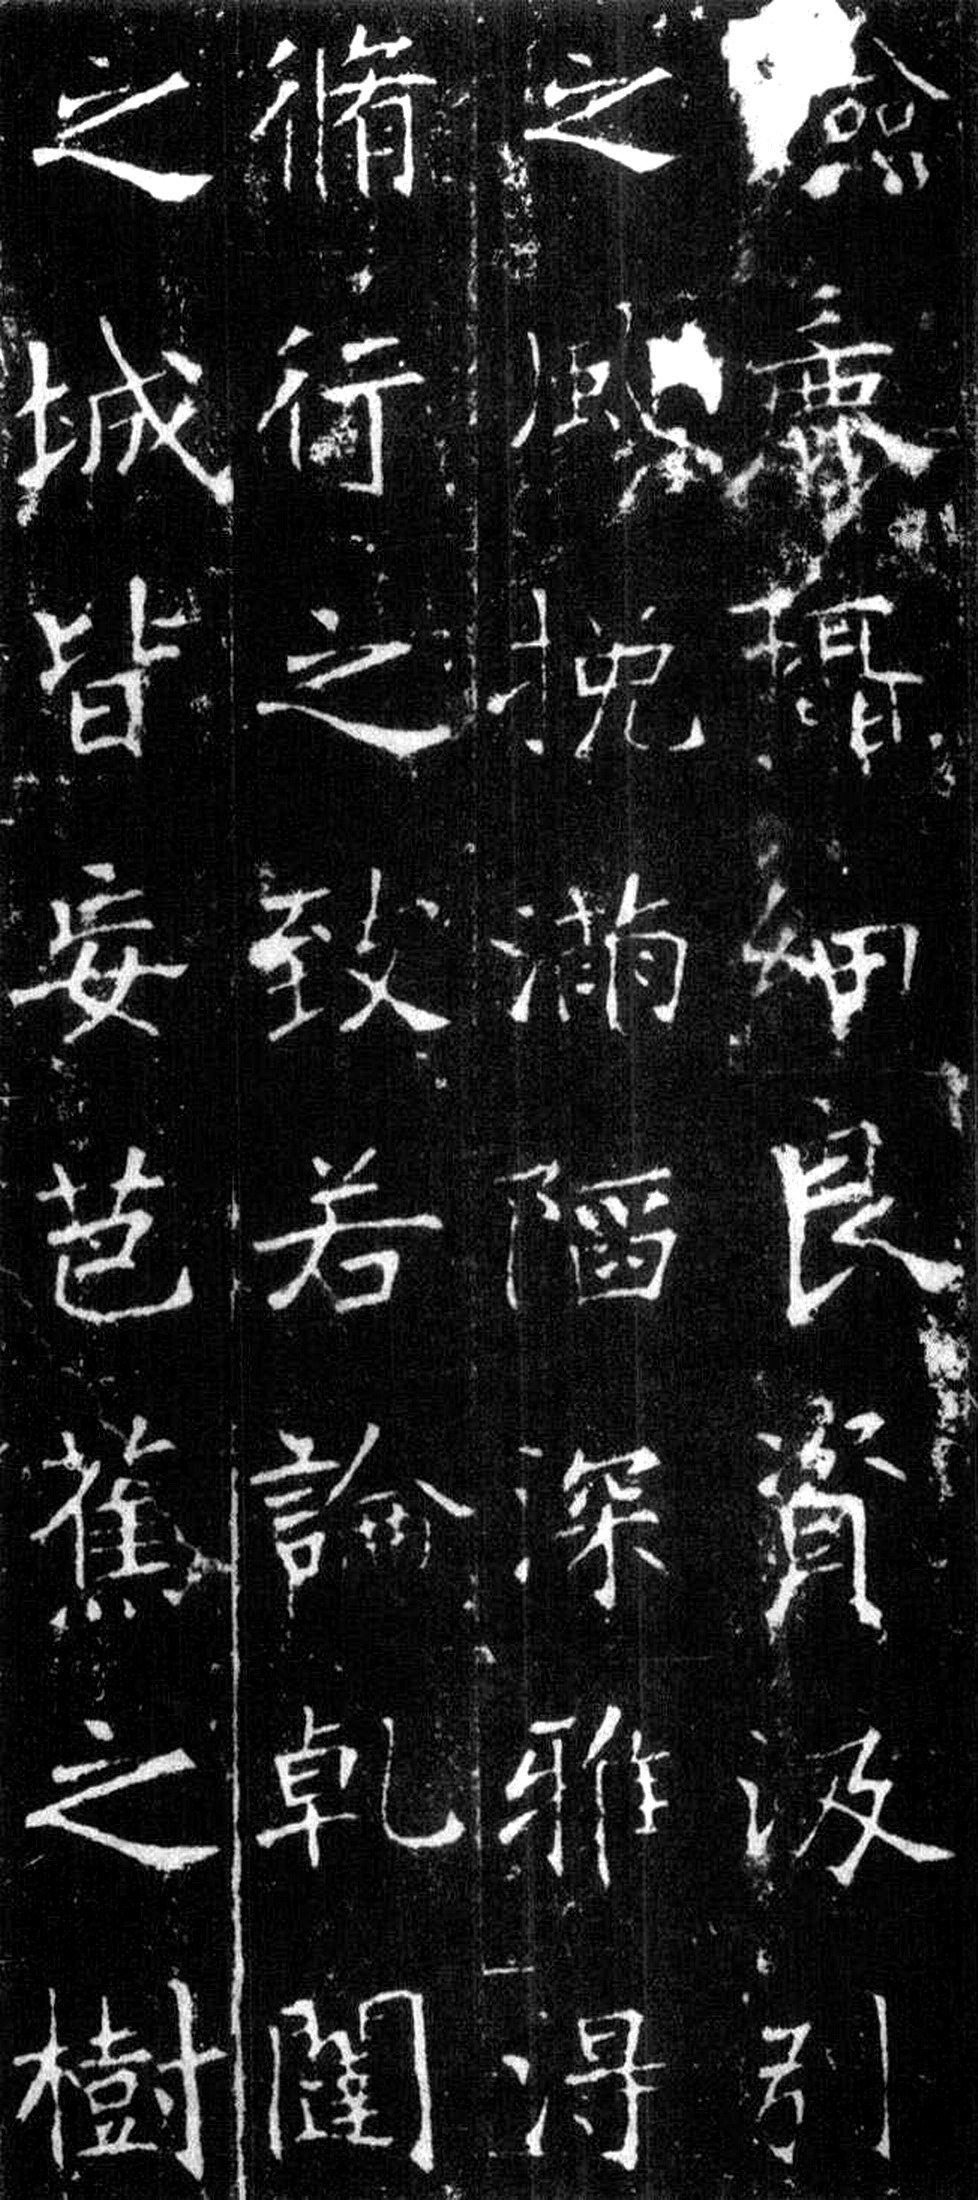 細良資汲引
之風挽滿陷深雅得
脩行之致若論乾闥
之城皆妄芭蕉之樹